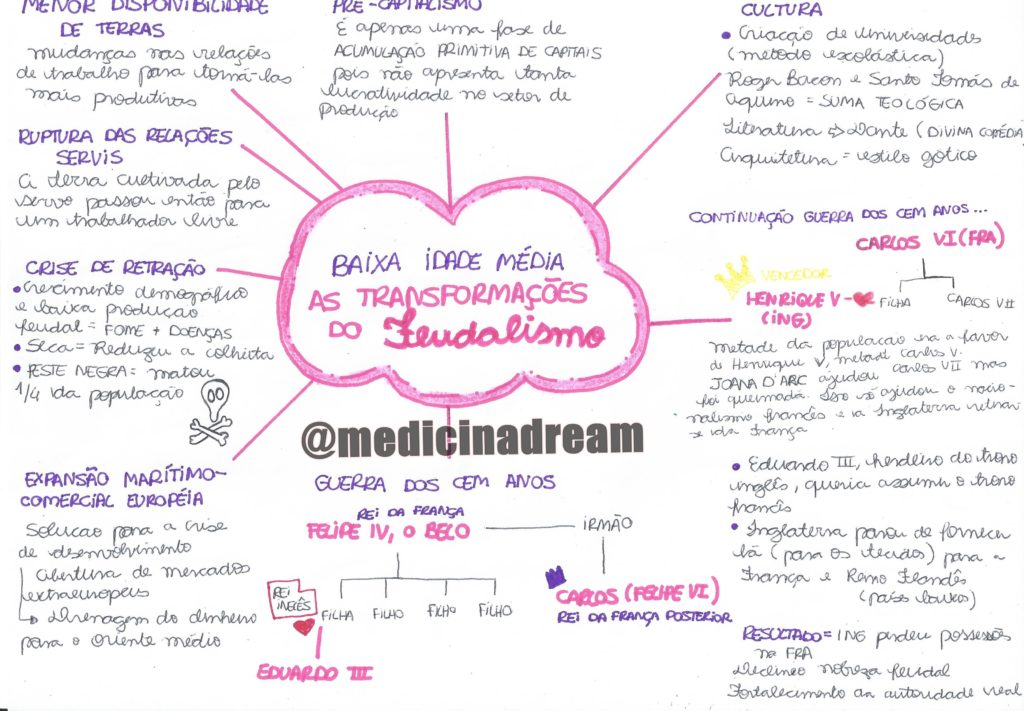 MENOR DISPONIBILIDADE
DE TERRAS
mudanças nas relações
de trabalho para torná-las
mais produtivas
PRÉ-CAPITALISMO
É apenas uma fase de
ACUMULAÇÃO PRIMITIVA DE CAPITAIS
pois não apresenta tanta
lucratividade no setor de
produção
CULTURA
• Criacção de universidades
(metodo escolástica)
Roger Bacon e Santo Tomás de
Aquino = SUMA TEOLÓGICA
Literatura => Dante (DIVINA COMÉDIA
Arquitetura = estilo gótico
RUPTURA DAS RELAÇÕES
SERVIS
A terra cultivada pelo
servo passou então para
um trabalhador livre
CRISE DE RETRAÇÃO
• Crescimento demográfico
e baixa produção
feudal = FOME + DOENÇAS
• Seca = Reduziu a colheita
• PESTE NEGRA = matou
1/4 da população
BAIXA IDADE MÉDIA
AS TRANSFORMAÇÕES
DO Feudalismo
@medicinadream
CONTINUAÇÃO GUERRA DOS CEM ANOS...
CARLOS VI (FRA)
VENCEDOR
HENRIQUE V - FILHA CARLOS VII
(ING)
metade da populacao era a favor
de Henrique V, metade Carlos V.
JOANA D'ARC ajudou Carlos VII mas
foi queimada. Isso só ajudou o nacio-
nalismo francês e a Inglaterra
se da França
EXPANSÃO MARÍTIMO-
COMERCIAL EUROPÉIA
Solucao para a crise
de desenvolvimento
Abertura de mercados
extraeuropeus
Drenagem do dinheiro
para o Oriente médio
GUERRA DOS CEM ANOS
REI DA FRANÇA
FELIPE IV, O BELO
IRMÃO
REI
INGLÊS
FILHA FILHO FILHO FILHO
CARLOS (FELIPE VI)
REI DA FRANÇA POSTERIOR
EDUARDO III
• Eduardo III, herdeiro do trono
inglês, queria assumir o trono
francês
• Inglaterra parou de fornecer
lã (para os tecidos) para a
França e Reino Flandês
(países baixos)
RESULTADO = ING perdeu possessões
na FRA
Declineo nobreza feudal
Fortalecimento da autoridade real